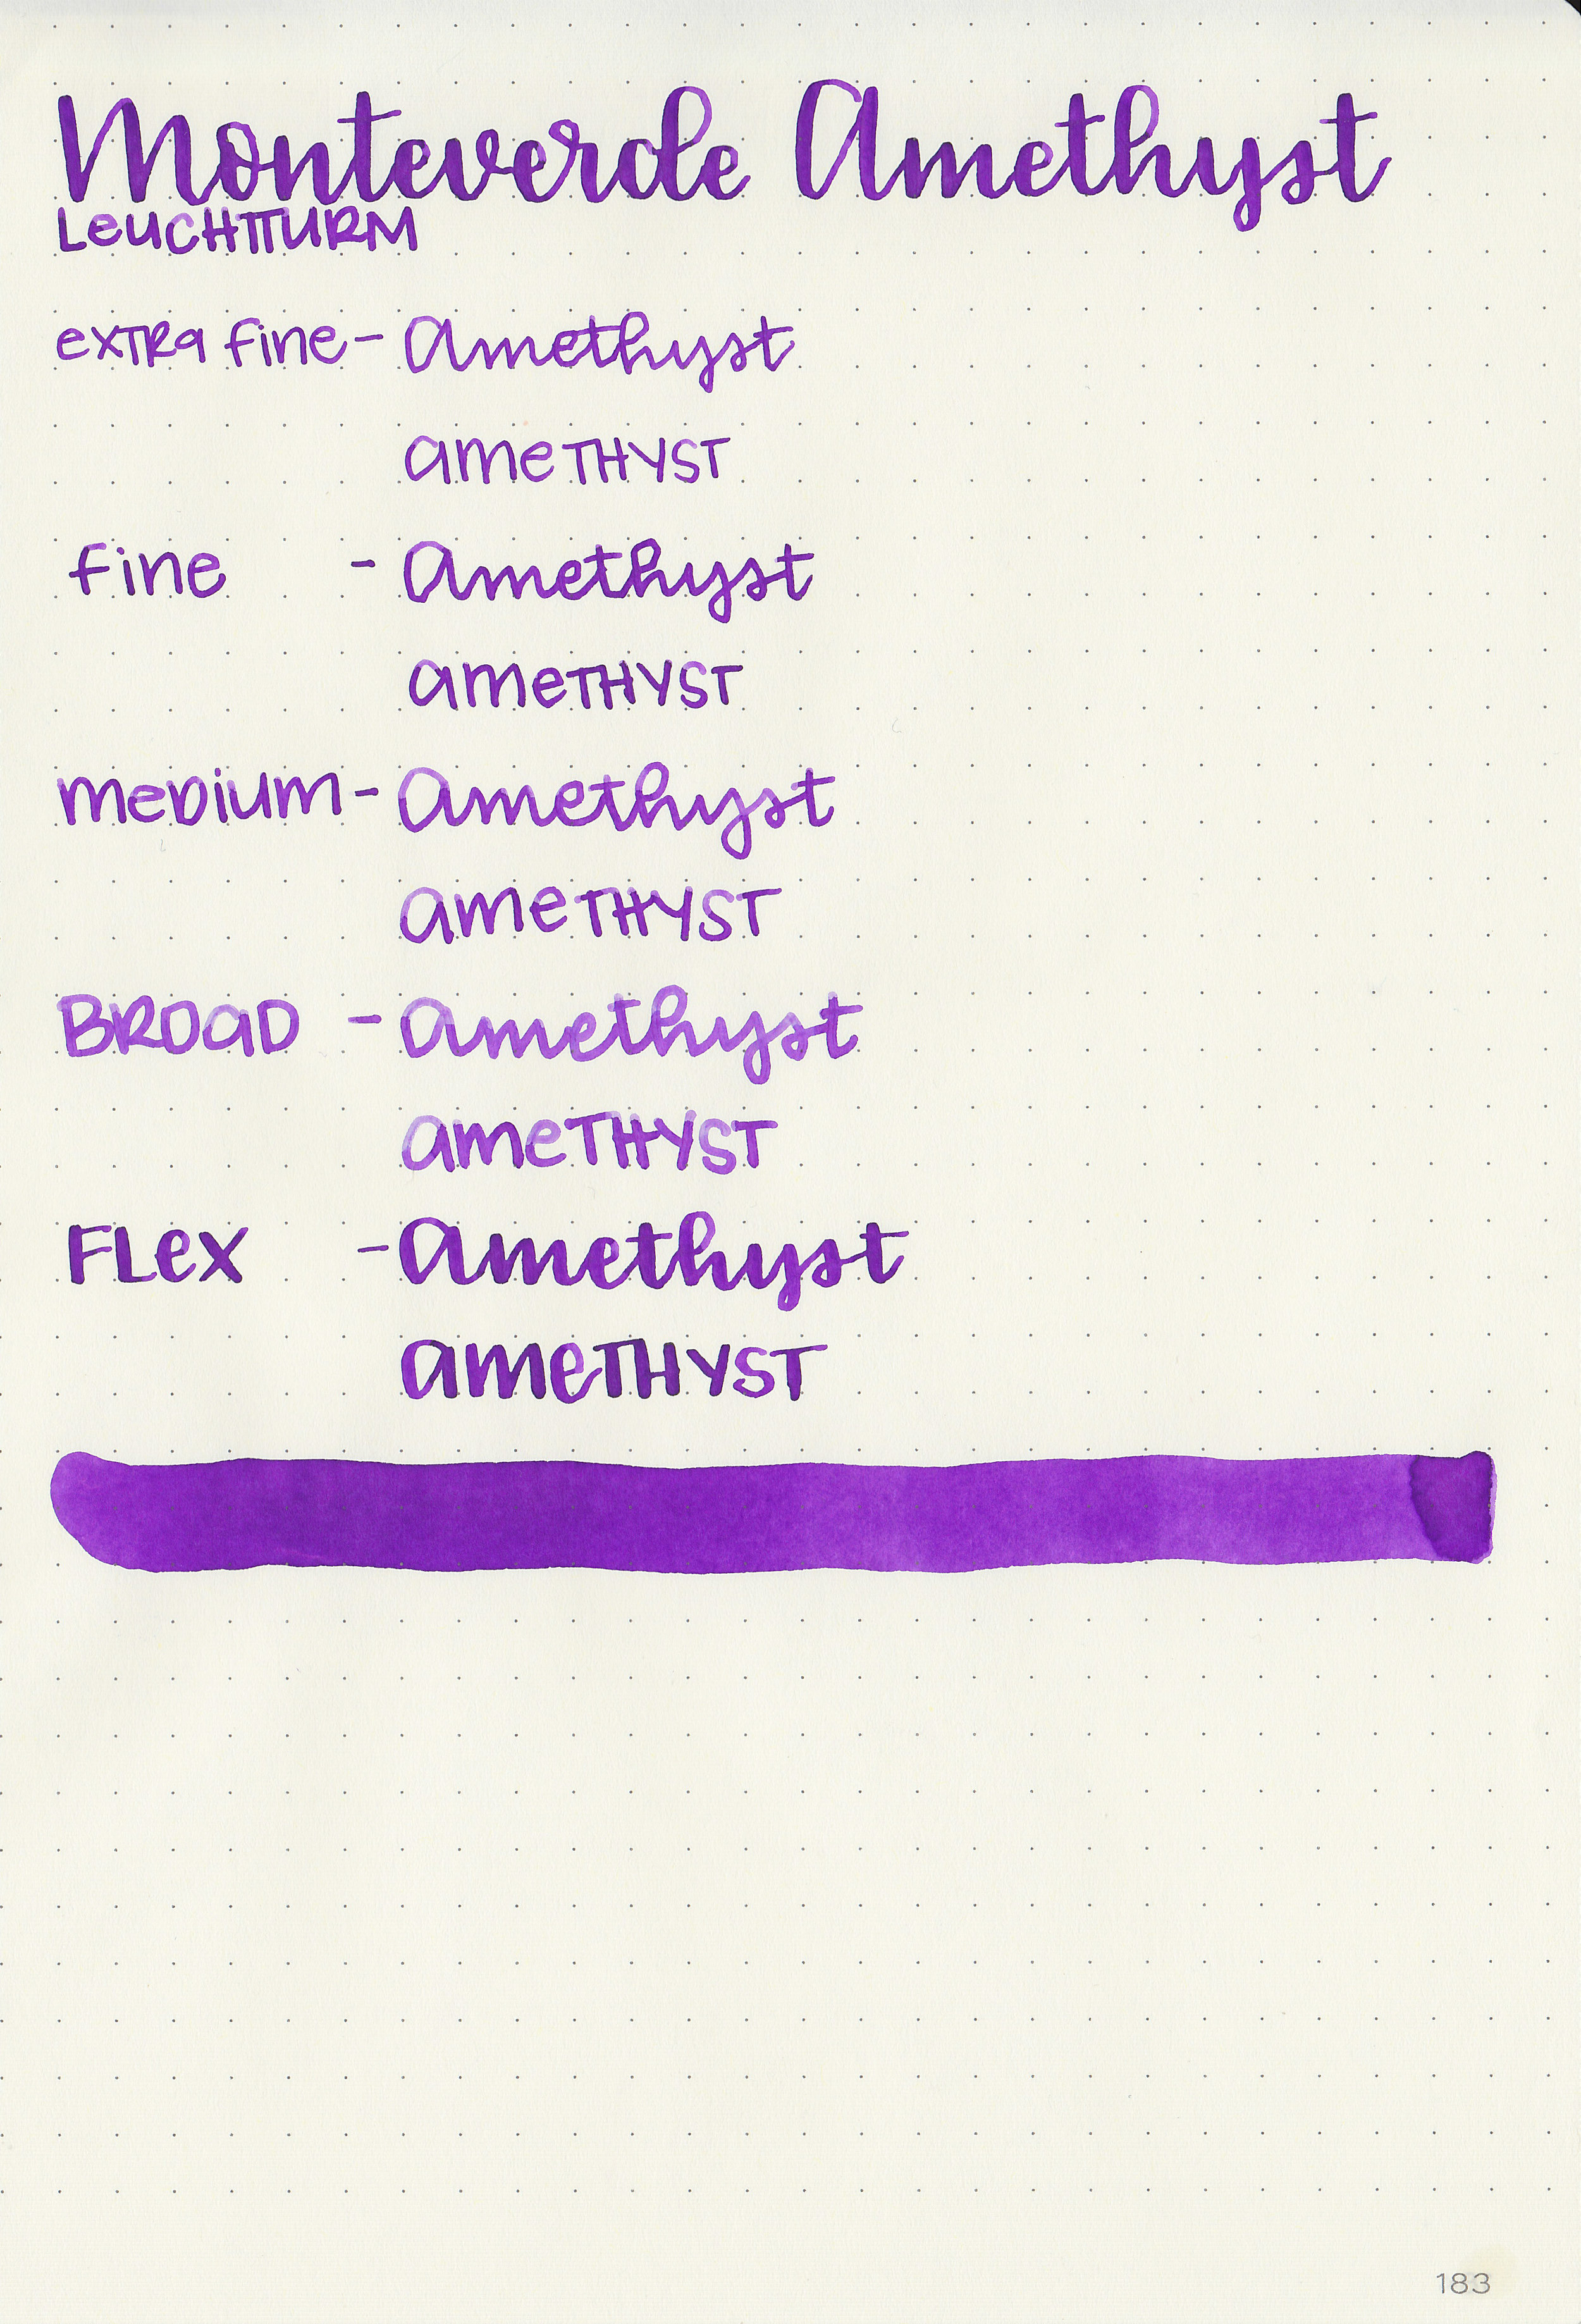 Monteverde Amethyst
LeuchTTURM
exTRa fine - Amethyst
ameTHYST
fine - Amethyst
ameTHYST
meDium - Amethyst
ameTHYST
BROaD - Amethyst
ameTHYST
FLex - Amethyst
ameTHYST
183